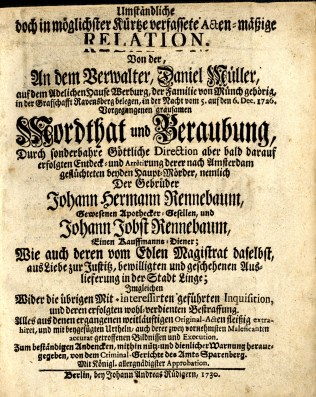 Umständliche
doch in möglichster Kürtze verfassete Acten-mäßige
RELATION.
Von der,
An dem Verwalter, Daniel Müller,
auf dem Adelichen Hause Werburg, der Familie von Münch gehörig,
in der Graffschafft Ravensberg belegen, in der Nacht vom 5. auf den 6. Dec. 1726.
Vorgegangenen grausamen
Mordthat und Beraubung,
Durch sonderbahre Göttliche Direction aber bald darauf
erfolgten Entdeck- und Arretirung derer nach Amsterdam
geflüchteten beyden Haupt-Mörder, nemlich
Der Gebrüder
Johann Hermann Rennebaum,
Gewesenen Apothecker-Gesellen, und
Johann Jobst Rennebaum,
Einen Kauffmanns-Diener;
Wie auch deren vom Edlen Magistrat daselbst,
aus Liebe zur Justitz, bewilligten und geschehenen Aus-
lieferung in der Stadt Linge;
Imgleichen
Wider die übrigen Mit-interessirten geführten Inquisition,
und deren erfolgten wohl-verdienten Bestraffung.
Alles aus denen ergangenen weitläuftigen Original-Acten fleißig extra-
hiret, und mit beygefügten Urtheln, auch derer zwey vornehmsten Maleficanten
accurat getroffenen Bildnissen und Execution.
Zum beständigen Andencken, mithin nütz- und dienlicher Warnung heraus-
gegeben, von dem Criminal-Gerichte des Amts Sparenberg.
Mit Königl. allergnädigster Approbation.
Berlin, bey Johann Andreas Rüdigern, 1730.